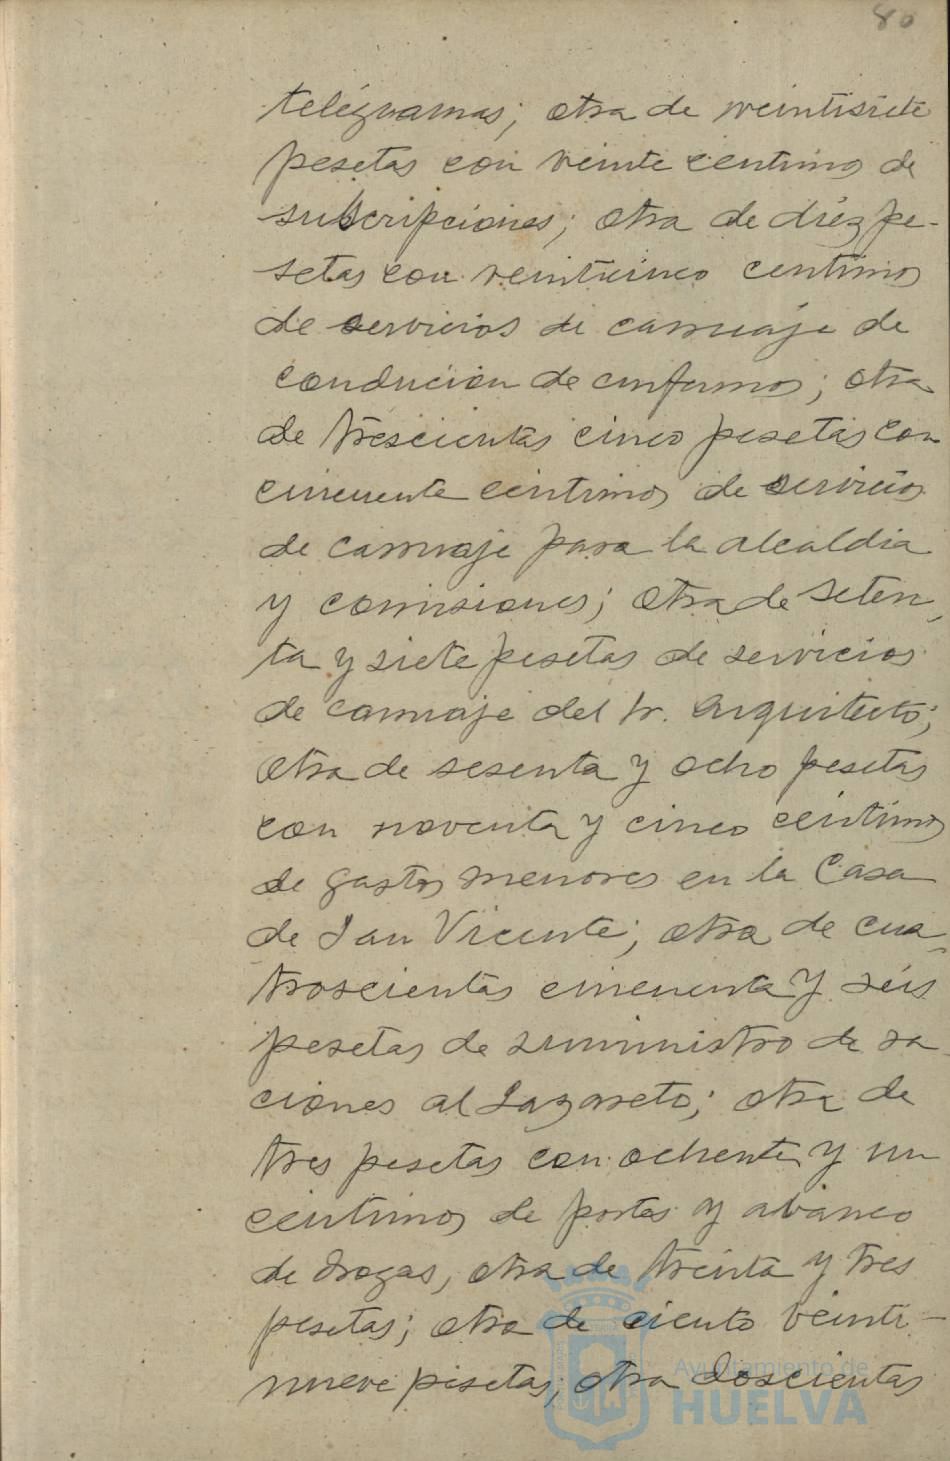 80
telégramas; otra de veintisiete
pesetas con veinte centimos de
subscripciones; otra de diéz pe-
setas con veinticinco centimos
de servicios de carruaje de
conducion de enfermos; otra
de trescientas cinco pesetas con
cincuenta céntimos de servicios
de carruaje para la alcaldia
y comisiones; otra de seten-
ta y siete pesetas de servicios
de carruaje del Sr. Arquitecto;
otra de sesenta y ocho pesetas
con noventa y cinco céntimos
de gastos menores en la Casa
de San Vicente; otra de cua-
troscientas cincuenta y séis
pesetas de suministro de ra-
ciones al Lazareto; otra de
tres pesetas con ochenta y un
céntimos de portes y
de drogas, otra de treinta y tres
pesetas; otra de ciento veinti-
nueve pesetas; otra doscientas
Ayuntamiento de
HUELVA